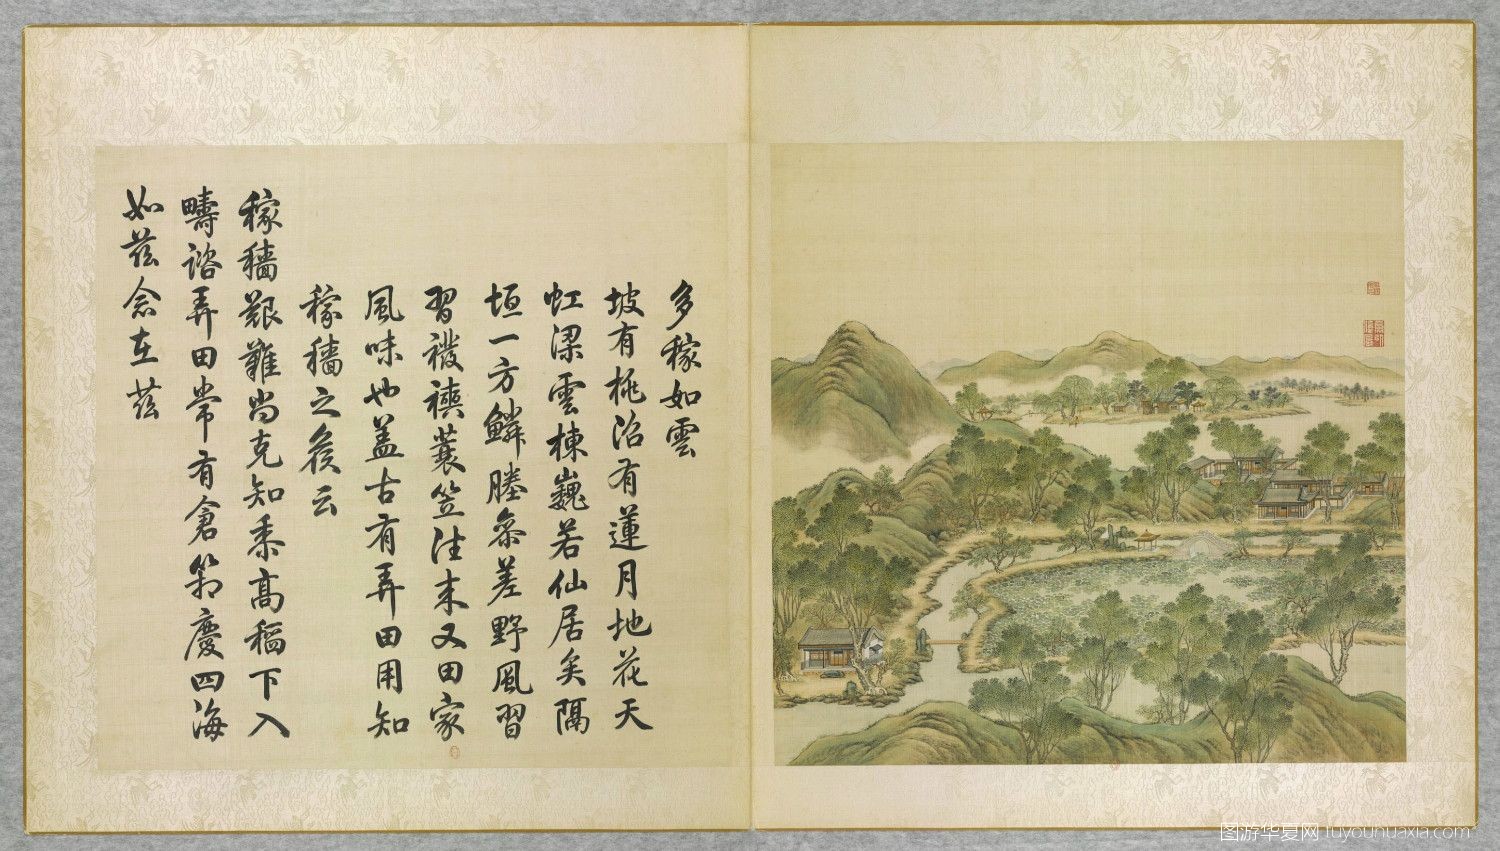 多稼如雲
坡有桃沼有蓮月地花天
虹梁雲棟巍若仙居矣隔
垣一方鱗塍參差野風習
習襏襫蓑笠往來又田家
風味也蓋古有弄田用知
稼穡之候云
稼穡艱難尚克知黍高稻下入
疇諮弄田常有倉箱慶四海
如茲念在茲
图游华夏网 tuyouhuaxia.com